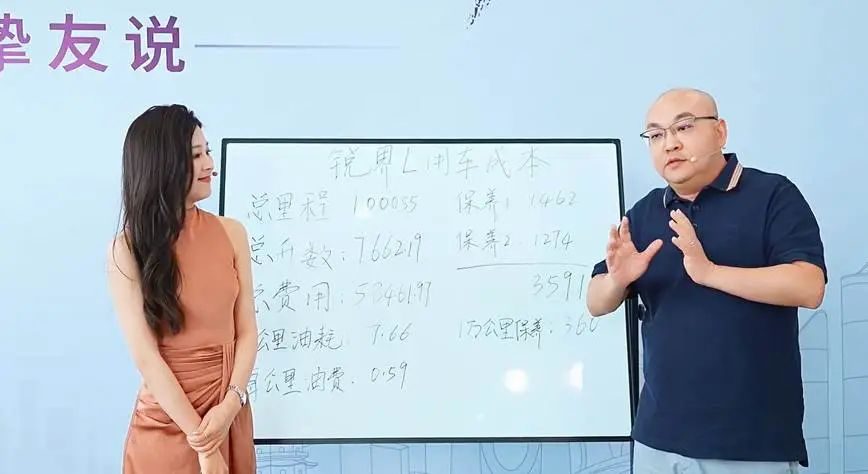 挚友说
锐界L用车成本
总里程 100055
总升数:7662.19
总费用:58461.97
公里油耗 7.66
每公里油费. 0.59
保养1. 1462
保养2. 1274
3591
1万公里保养:360